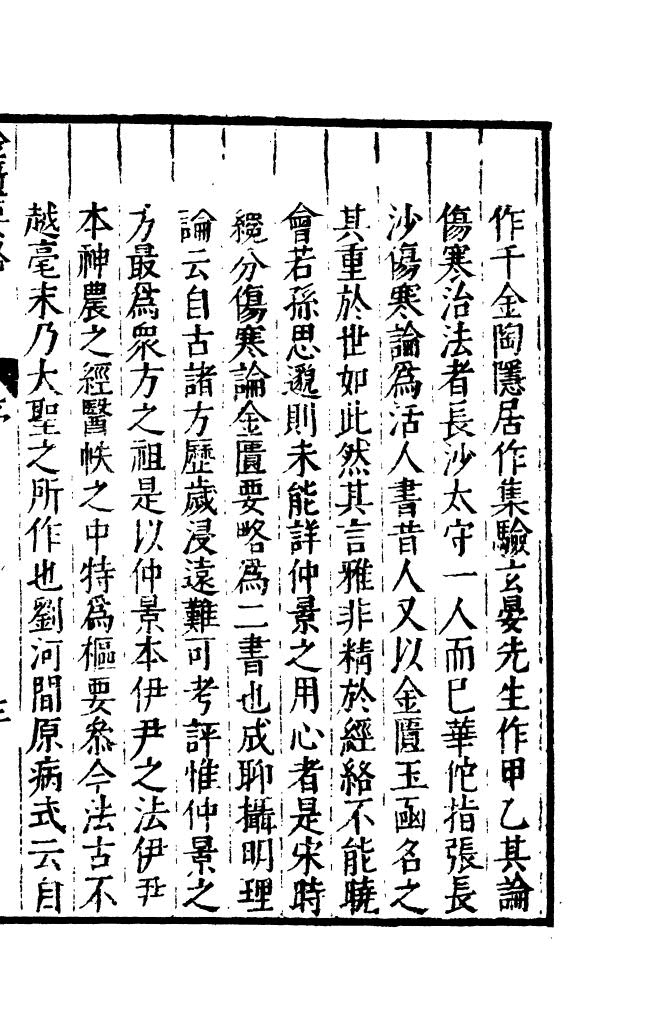 作千金陶隱居作集驗玄晏先生作甲乙其論
傷寒治法者長沙太守一人而已華佗指張長
沙傷寒論爲活人書昔人又以金匱玉函名之
其重於世如此然其言雅非精於經絡不能曉
會若孫思邈則未能詳仲景之用心者是宋時
纔分傷寒論金匱要略爲二書也成聊攝明理
論云自古諸方歷歲浸遠難可考評惟仲景之
方最爲衆方之祖是以仲景本伊尹之法伊尹
本神農之經醫帙之中特爲樞要叅今法古不
越毫末乃大聖之所作也劉河間原病式云自